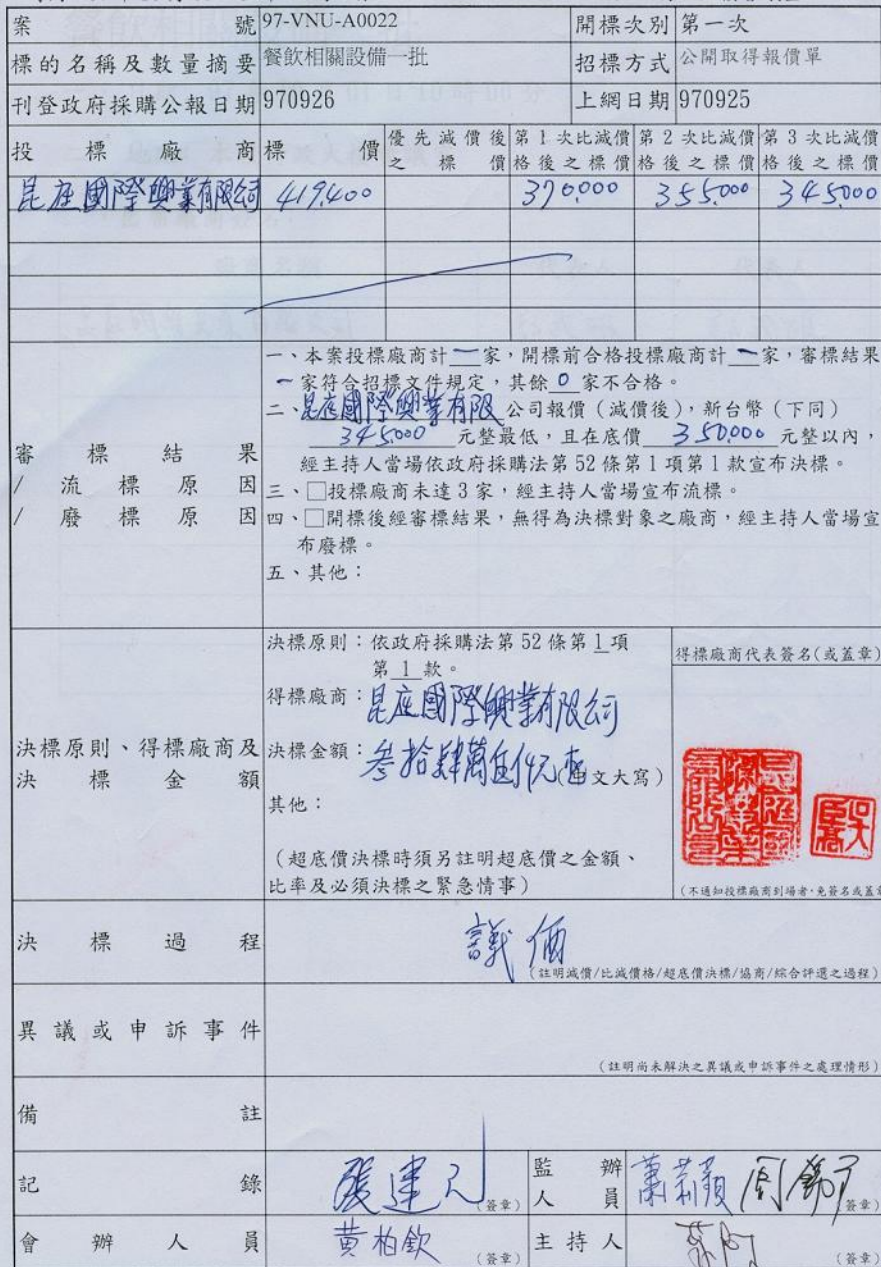 案號 97-VNU-A0022 開標次別 第一次
標的名稱及數量摘要 餐飲相關設備一批 招標方式 公開取得報價單
刊登政府採購公報日期 970926 上網日期 970925
投標廠商 標價 優先減價後之標價 第1次比減價格後之標價 第2次比減價格後之標價 第3次比減價格後之標價
昆庭國際興業有限公司 419,400 370,000 355,000 345,000
審標結果
/流標原因
/廢標原因
一、本案投標廠商計一家,開標前合格投標廠商計一家,審標結果
一家符合招標文件規定,其餘0家不合格。
二、昆庭國際興業有限公司報價(減價後),新台幣(下同)
345,000元整最低,且在底價350,000元整以內,
經主持人當場依政府採購法第52條第1項第1款宣布決標。
三、□投標廠商未達3家,經主持人當場宣布流標。
四、□開標後經審標結果,無得為決標對象之廠商,經主持人當場宣
布廢標。
五、其他:
決標原則、得標廠商及
決標金額
決標原則:依政府採購法第52條第1項
第1款。
得標廠商:昆庭國際興業有限公司
決標金額:參拾肆萬伍仟元整(中文大寫)
其他:
(超底價決標時須另註明超底價之金額、
比率及必須決標之緊急情事)
得標廠商代表簽名(或蓋章)
(不通知投標廠商到場者,免簽名或蓋章
決標過程 議價
(註明減價/比減價格/超底價決標/協商/綜合評選之過程)
異議或申訴事件
(註明尚未解決之異議或申訴事件之處理情形)
備註
記錄 張建 (簽章) 監辦人員 (簽章)
會辦人員 黃柏欽 (簽章) 主持人 (簽章)